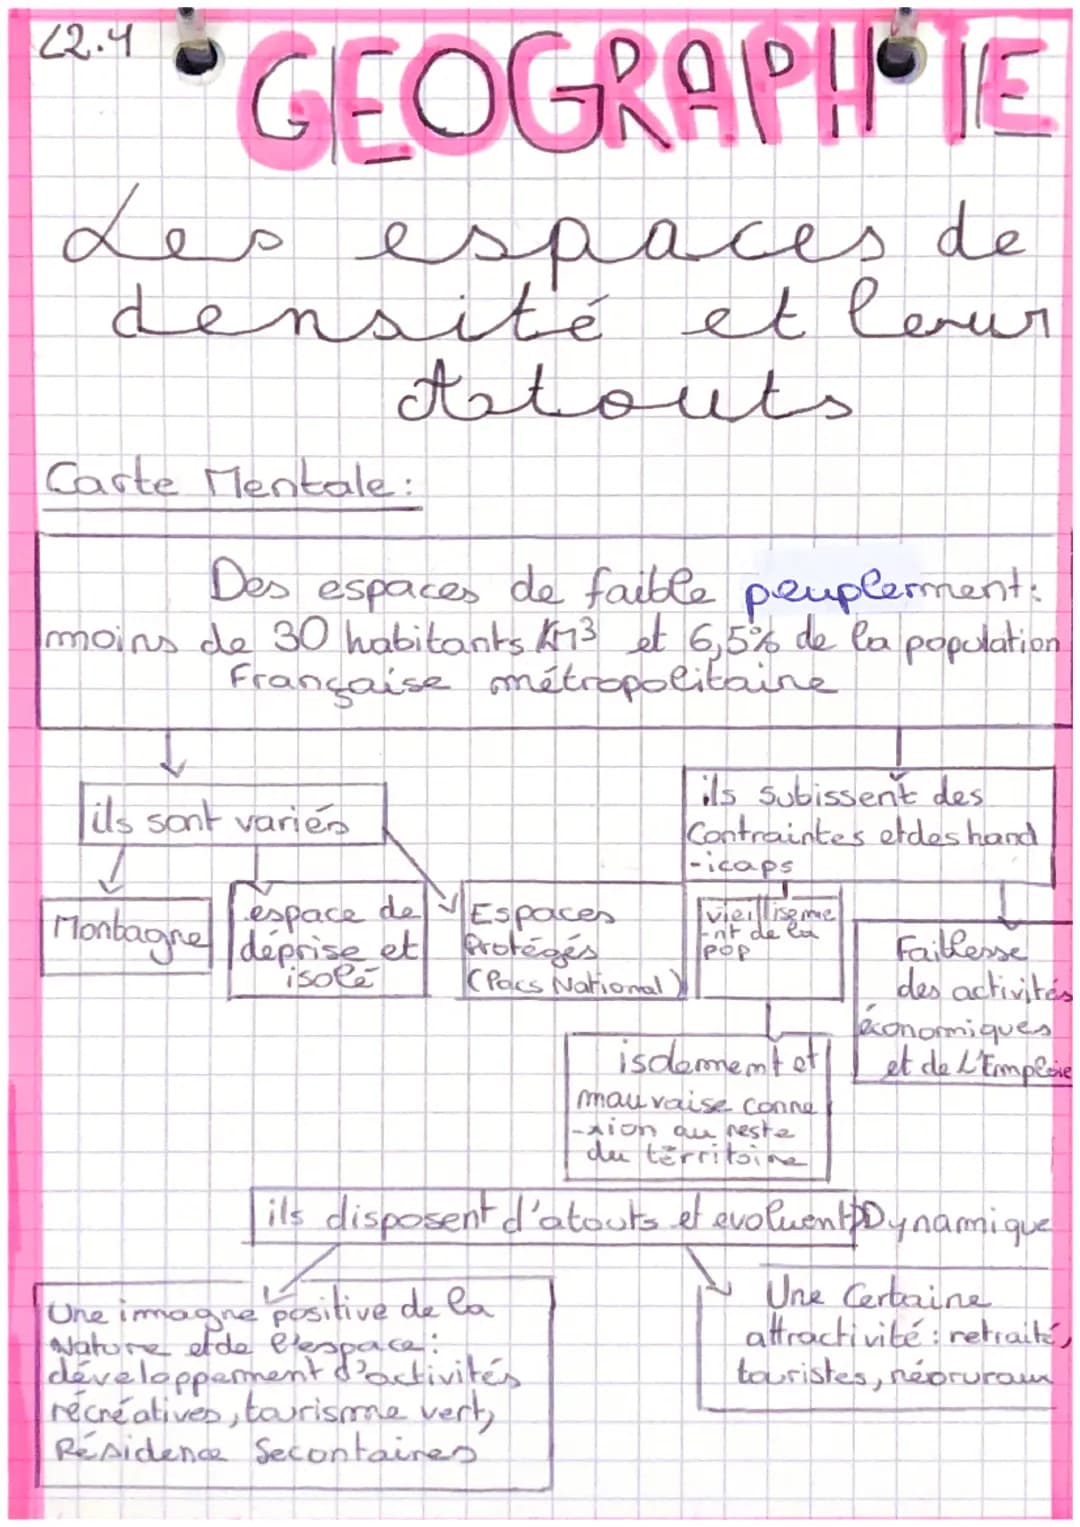 L2.4
GEOGRAPHIE
Les espaces de
densité et leur
Atouts
Carte Mentale :
Des espaces de faible peuplerment :
moins de 30 habitants Km3 et 6,5% de la population
Française métropolitaine
ils sont variés
Montagne
espace de
déprise et
isolé
Espaces
Protégés
(Parcs National)
ils subissent des
Contraintes et des hand
-icaps
vieilliseme
-nt de la
pop
Faiblesse
des activités
économiques
et de L'Emploie
isolement et
mauvaise conne
-xion au reste
du térritoire
ils disposent d'atouts et evoluent Dynamique
Une imagne positive de la
Nature et de l'espace :
développement d'activités
récréatives, tourisme vert,
Résidence Secontaires
Une Certaine
attractivité : retraité,
touristes, néoruraux